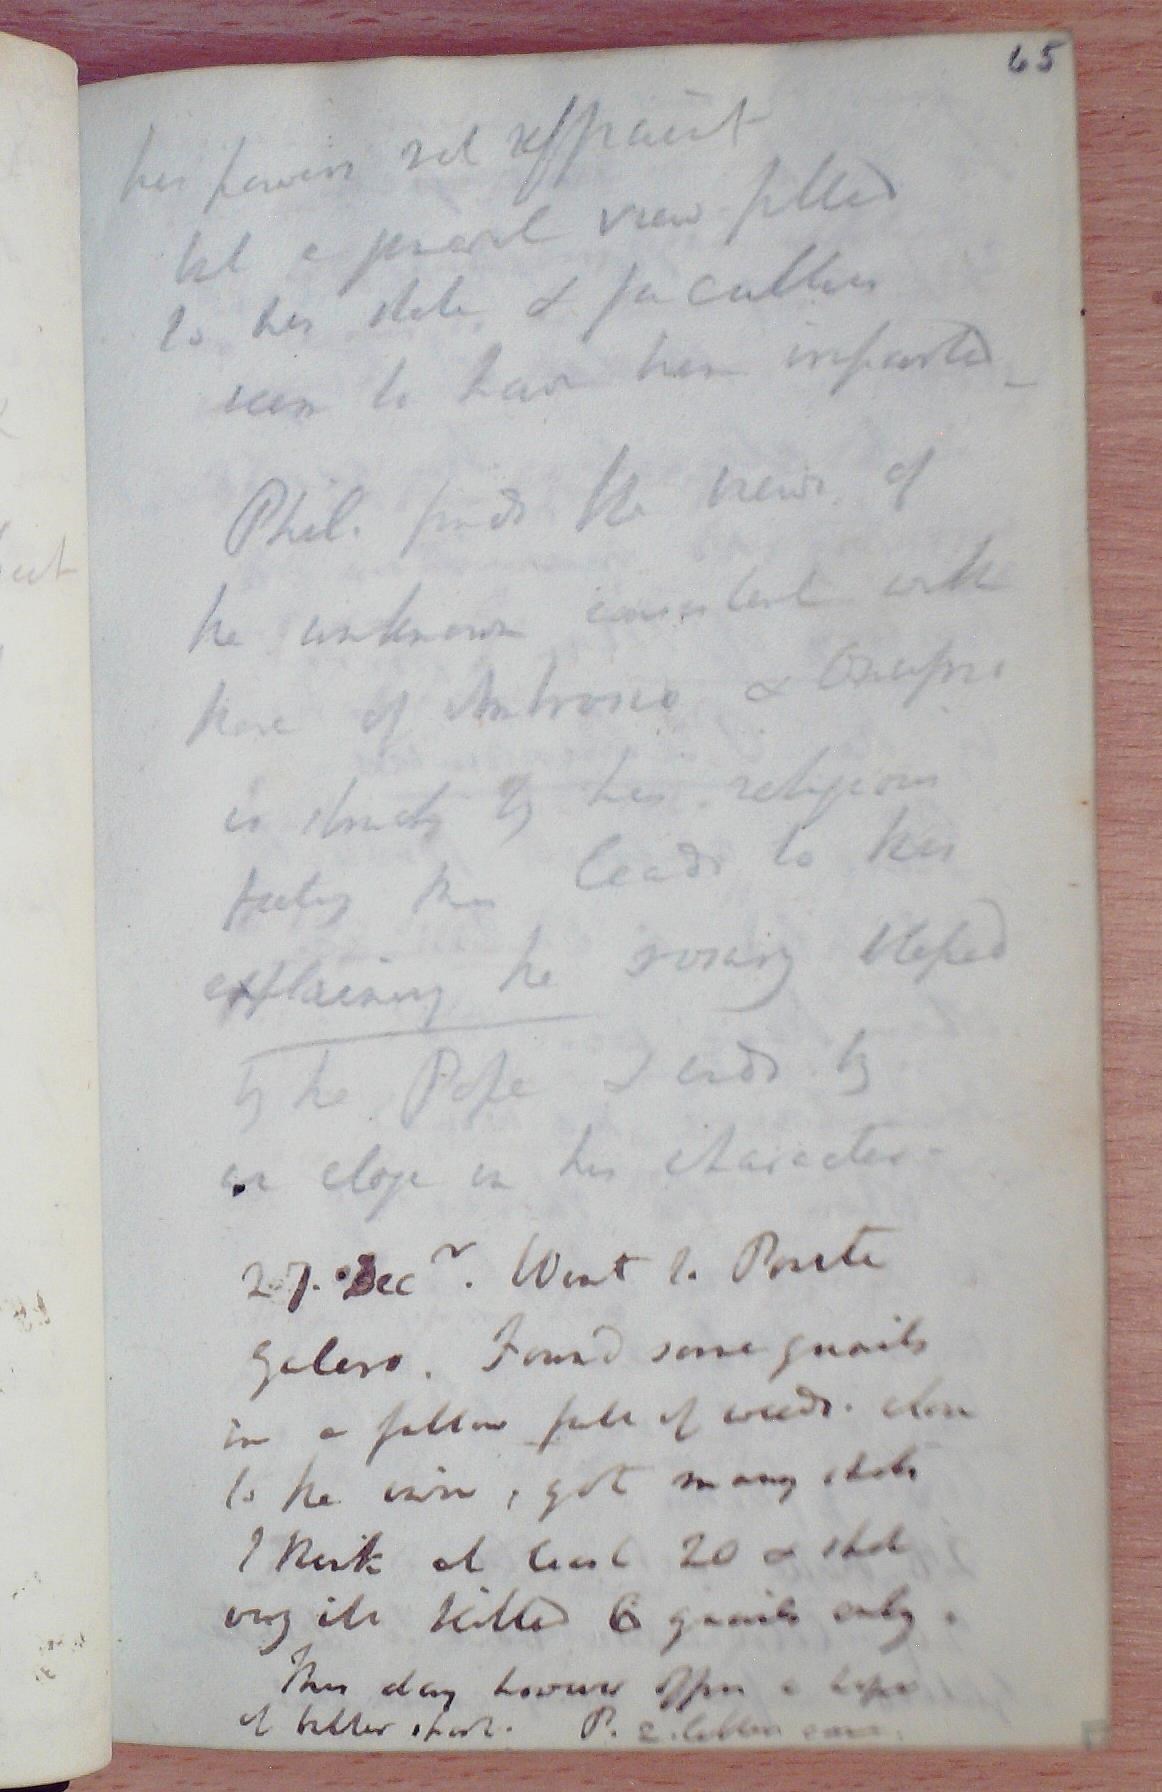 65
his powers not sufficient
but a general view fitted
to his state & faculties
seem to have been imparted_
Phil. finds the views of
the unknown consistent with
those of Ambrosio & Onuphrio
is struck by his religious
feeling this leads to his
explaining the rosary blessed
by the Pope & ends by
an eloge on his character.
27. Decr. Went to Ponte
Galera. Found some quails
in a fallow full of weeds close
to the , got many shots
I think at least 20 & shot
very ill killed 6 quails only.
This day however offers a hope
of better sport. P. 2.